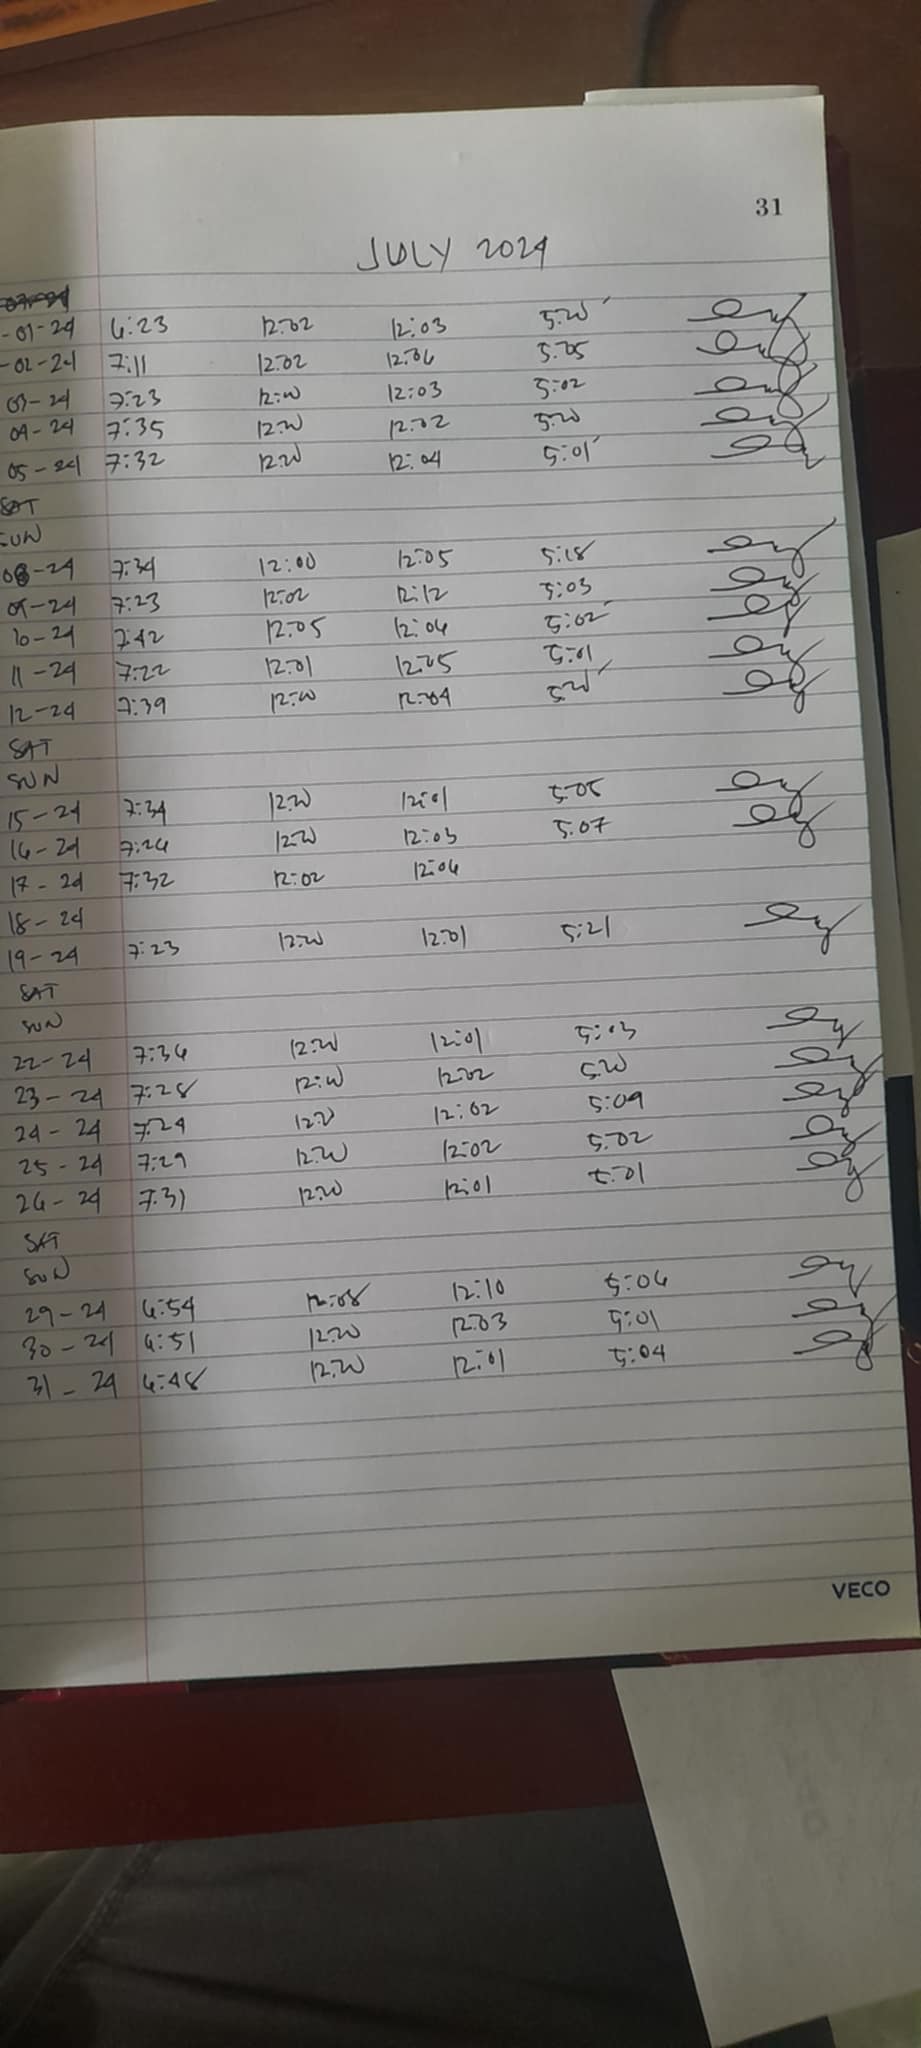 31
JULY 2024
-01-24 6:23 12:02 12:03 5:00
-02-24 7:11 12:02 12:06 5:05
03-24 7:23 12:00 12:03 5:02
04-24 7:35 12:00 12:02 5:00
05-24 7:32 12:00 12:04 5:01
SAT
SUN
08-24 7:34 12:00 12:05 5:18
09-24 7:23 12:02 12:12 5:03
10-24 7:42 12:05 12:06 5:02
11-24 7:22 12:01 12:05 5:01
12-24 7:39 12:00 12:04 5:00
SAT
SUN
15-24 7:34 12:00 12:01 5:05
16-24 7:26 12:00 12:03 5:07
17-24 7:32 12:02 12:06
18-24
19-24 7:23 12:00 12:01 5:21
SAT
SUN
22-24 7:36 12:00 12:01 5:03
23-24 7:28 12:00 12:02 5:00
24-24 7:24 12:00 12:02 5:09
25-24 7:29 12:00 12:02 5:02
26-24 7:31 12:00 12:01 5:01
SAT
SUN
29-24 6:54 12:08 12:10 5:06
30-24 6:51 12:00 12:03 5:01
31-24 6:48 12:00 12:01 5:04
VECO